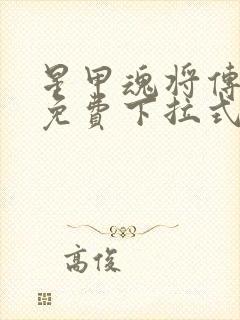 星甲魂将傳
免費下拉式
高俊